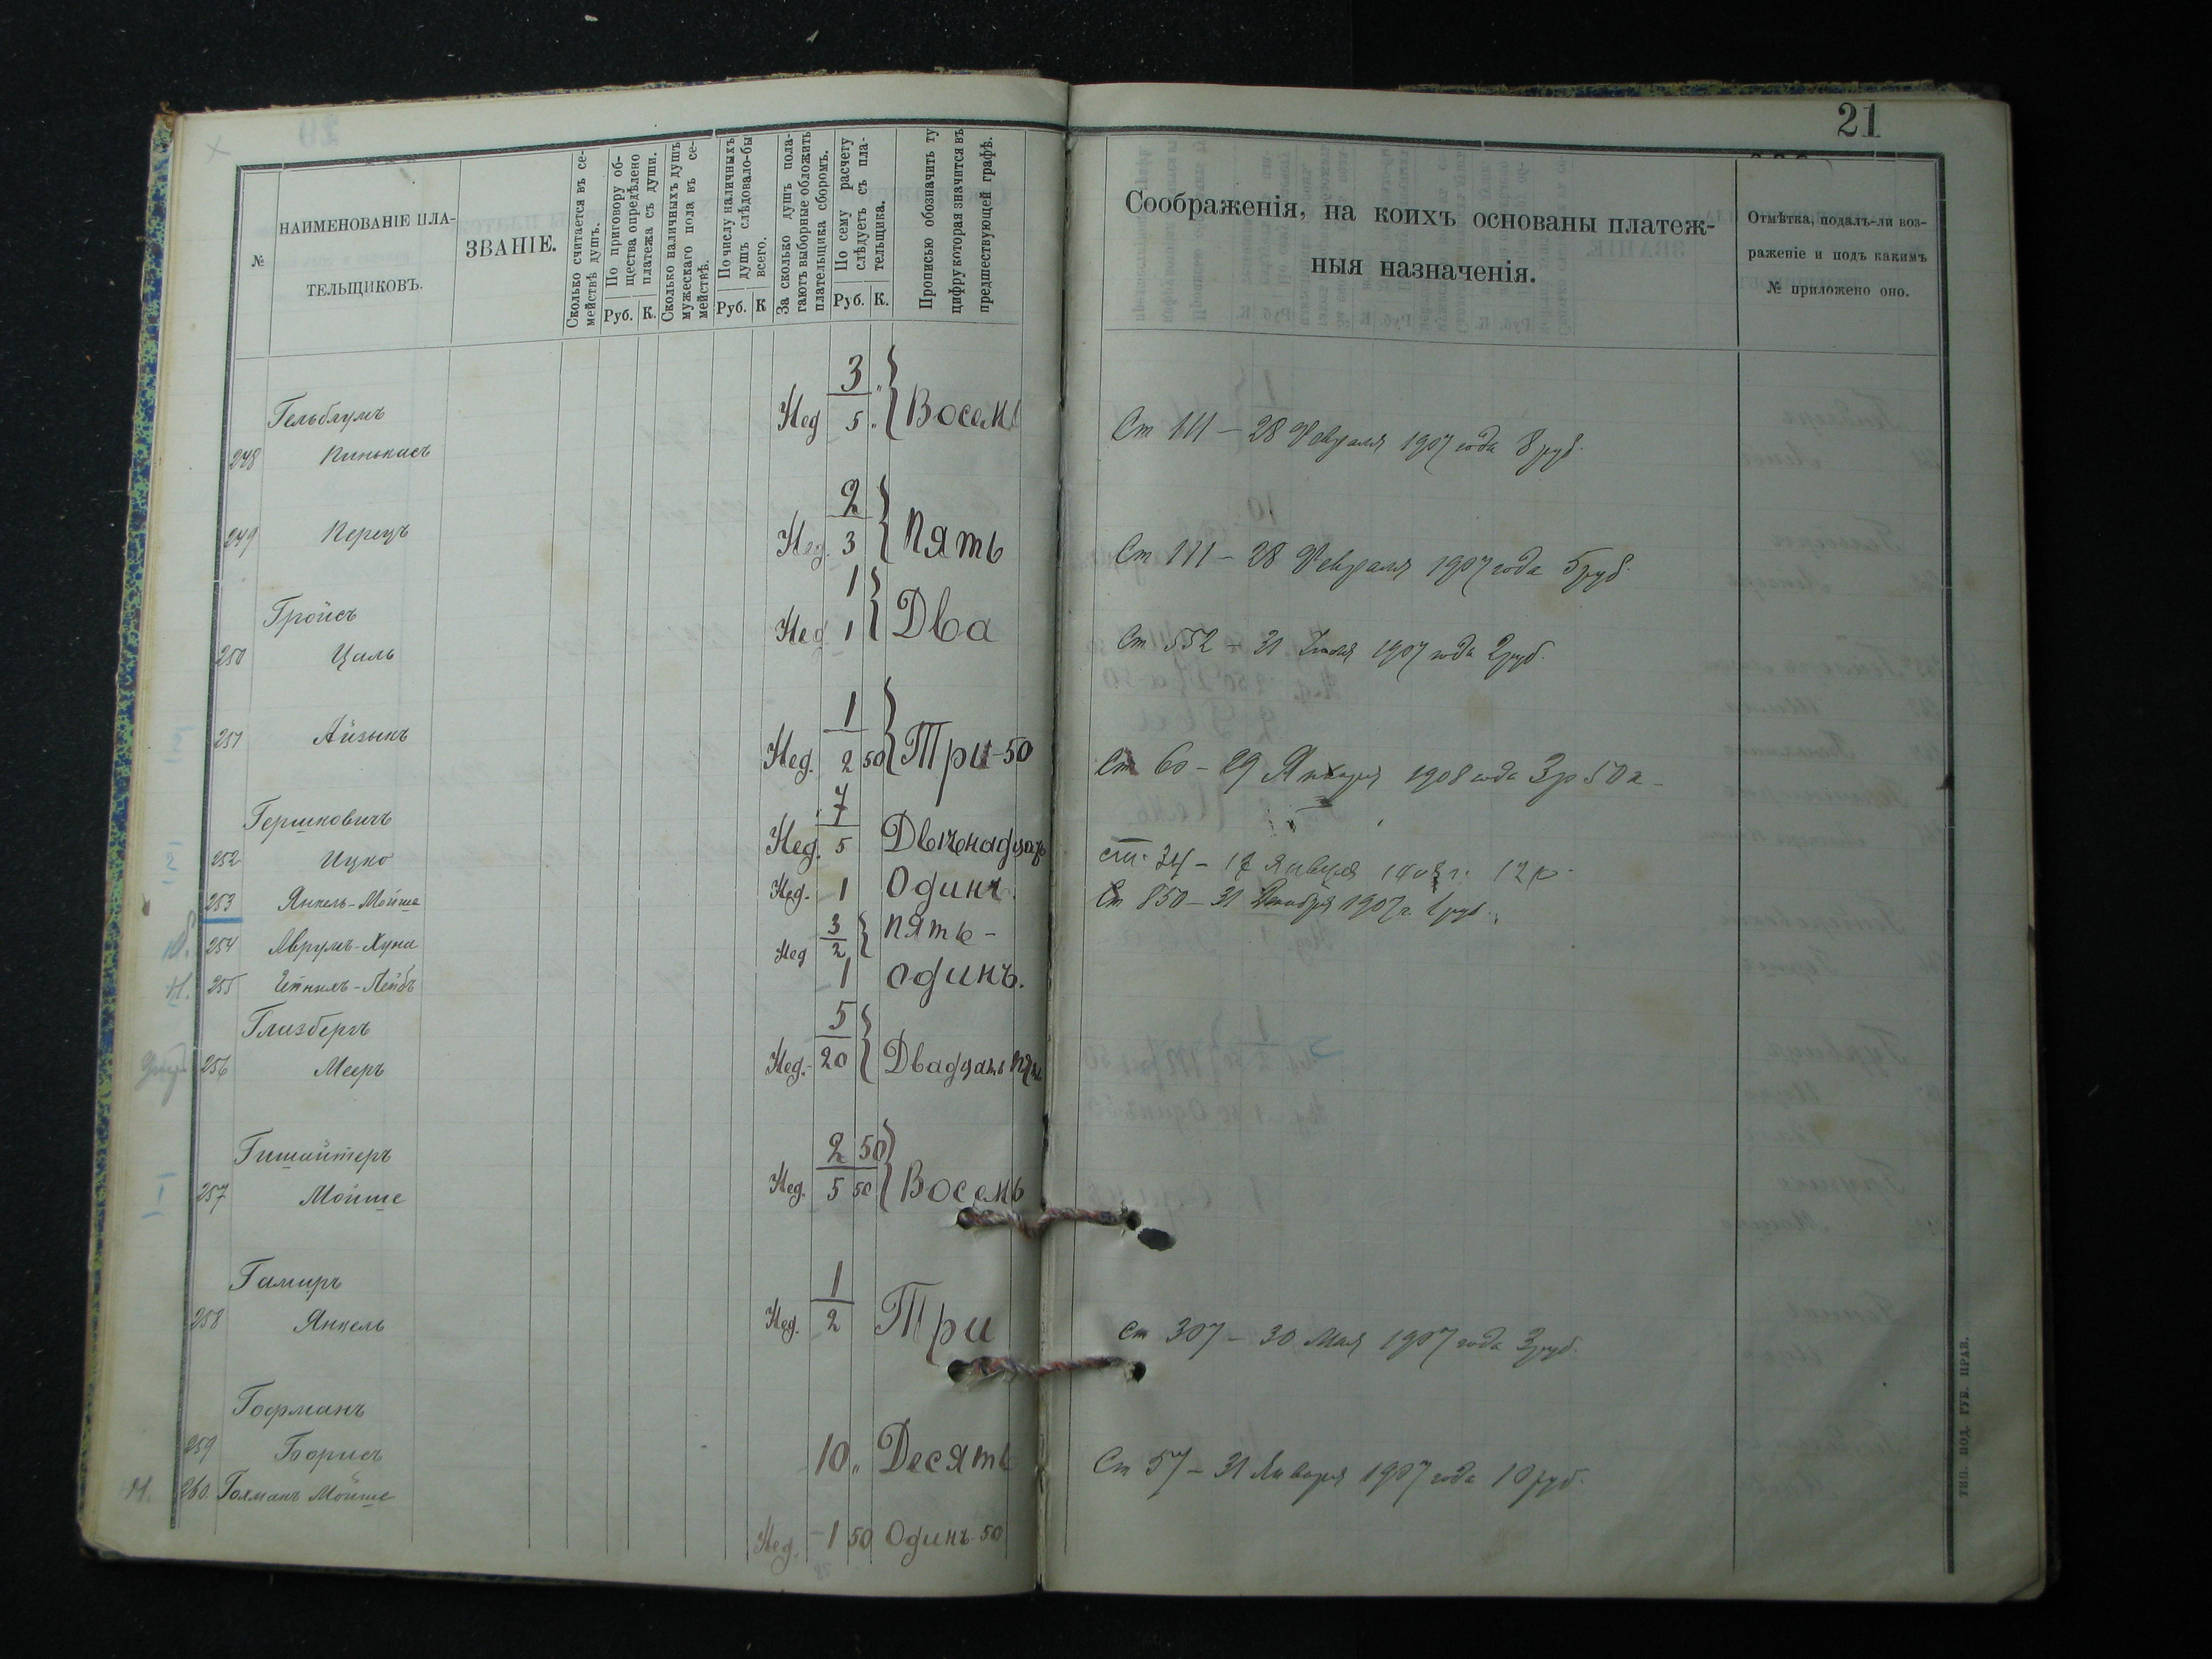 21
№
НАИМЕНОВАНІЕ ПЛА-
ТЕЛЬЩИКОВЪ.
ЗВАНІЕ.
Сколько считается въ се-
мействѣ душъ.
По приговору об-
щества опредѣлено
платежа съ души.
Руб. К.
Сколько наличныхъ душъ
мужескаго пола въ се-
мействѣ.
По числу наличныхъ
душъ слѣдовало-бы
всего.
Руб. К
За сколько душъ пола-
гаютъ выборные обложить
плательщика сборомъ.
По сему расчету
слѣдуетъ съ пла-
тельщика.
Руб. К.
Прописью обозначить ту
цифру которая значится въ
предшествующей графѣ.
Соображенія, на коихъ основаны платеж-
ныя назначенія.
Отмѣтка, подалъ-ли воз-
раженіе и подъ какимъ
№ приложено оно.
Гельблумъ
248 Пинькасъ
3 „
Нед 5 „ Восемь
Ст 111 – 28 Февраля 1907 года 8 руб.
249 Перецъ
2
Нед. 3 Пять
Ст 111 – 28 Февраля 1907 года 5 руб.
Гройсъ
250 Цаль
1
Нед 1 Два
Ст 552 – 31 Іюля 1907 года 2 руб.
251 Айзыкъ
1
Нед. 2 50 Три-50
Ст 60 – 29 Января 1908 года 3 р 50 к –
Гершковичъ
252 Ицко
7
Нед. 5 Двѣнадцать
ст. 34 – 17 Января 1908 г. 12 р.
253 Янкель-Мойше
Нед. 1 Одинъ.
Ст 850 – 31 Декабря 1907 г. 1 руб.
254 Аврумъ-Хуна
3
Нед 2 Пять –
Н. 255 -Лейбъ
1 одинъ.
Глизбергъ
256 Мееръ
5
Нед. 20 Двадцать пять
Гишайтеръ
257 Мойше
2 50
Нед. 5 50 Восемь
Гамиръ
258 Янкель
1
Нед. 2 Три
Ст 307 – 30 Мая 1907 года 3 руб.
Гофманъ
259 Борисъ
10 „ Десять
Ст 57 – 31 Января 1907 года 10 руб.
Н. 260. Гохманъ Мойше
Нед. – 1 50 Одинъ-50
ТИП. ПОД. ГУБ. ПРАВ.